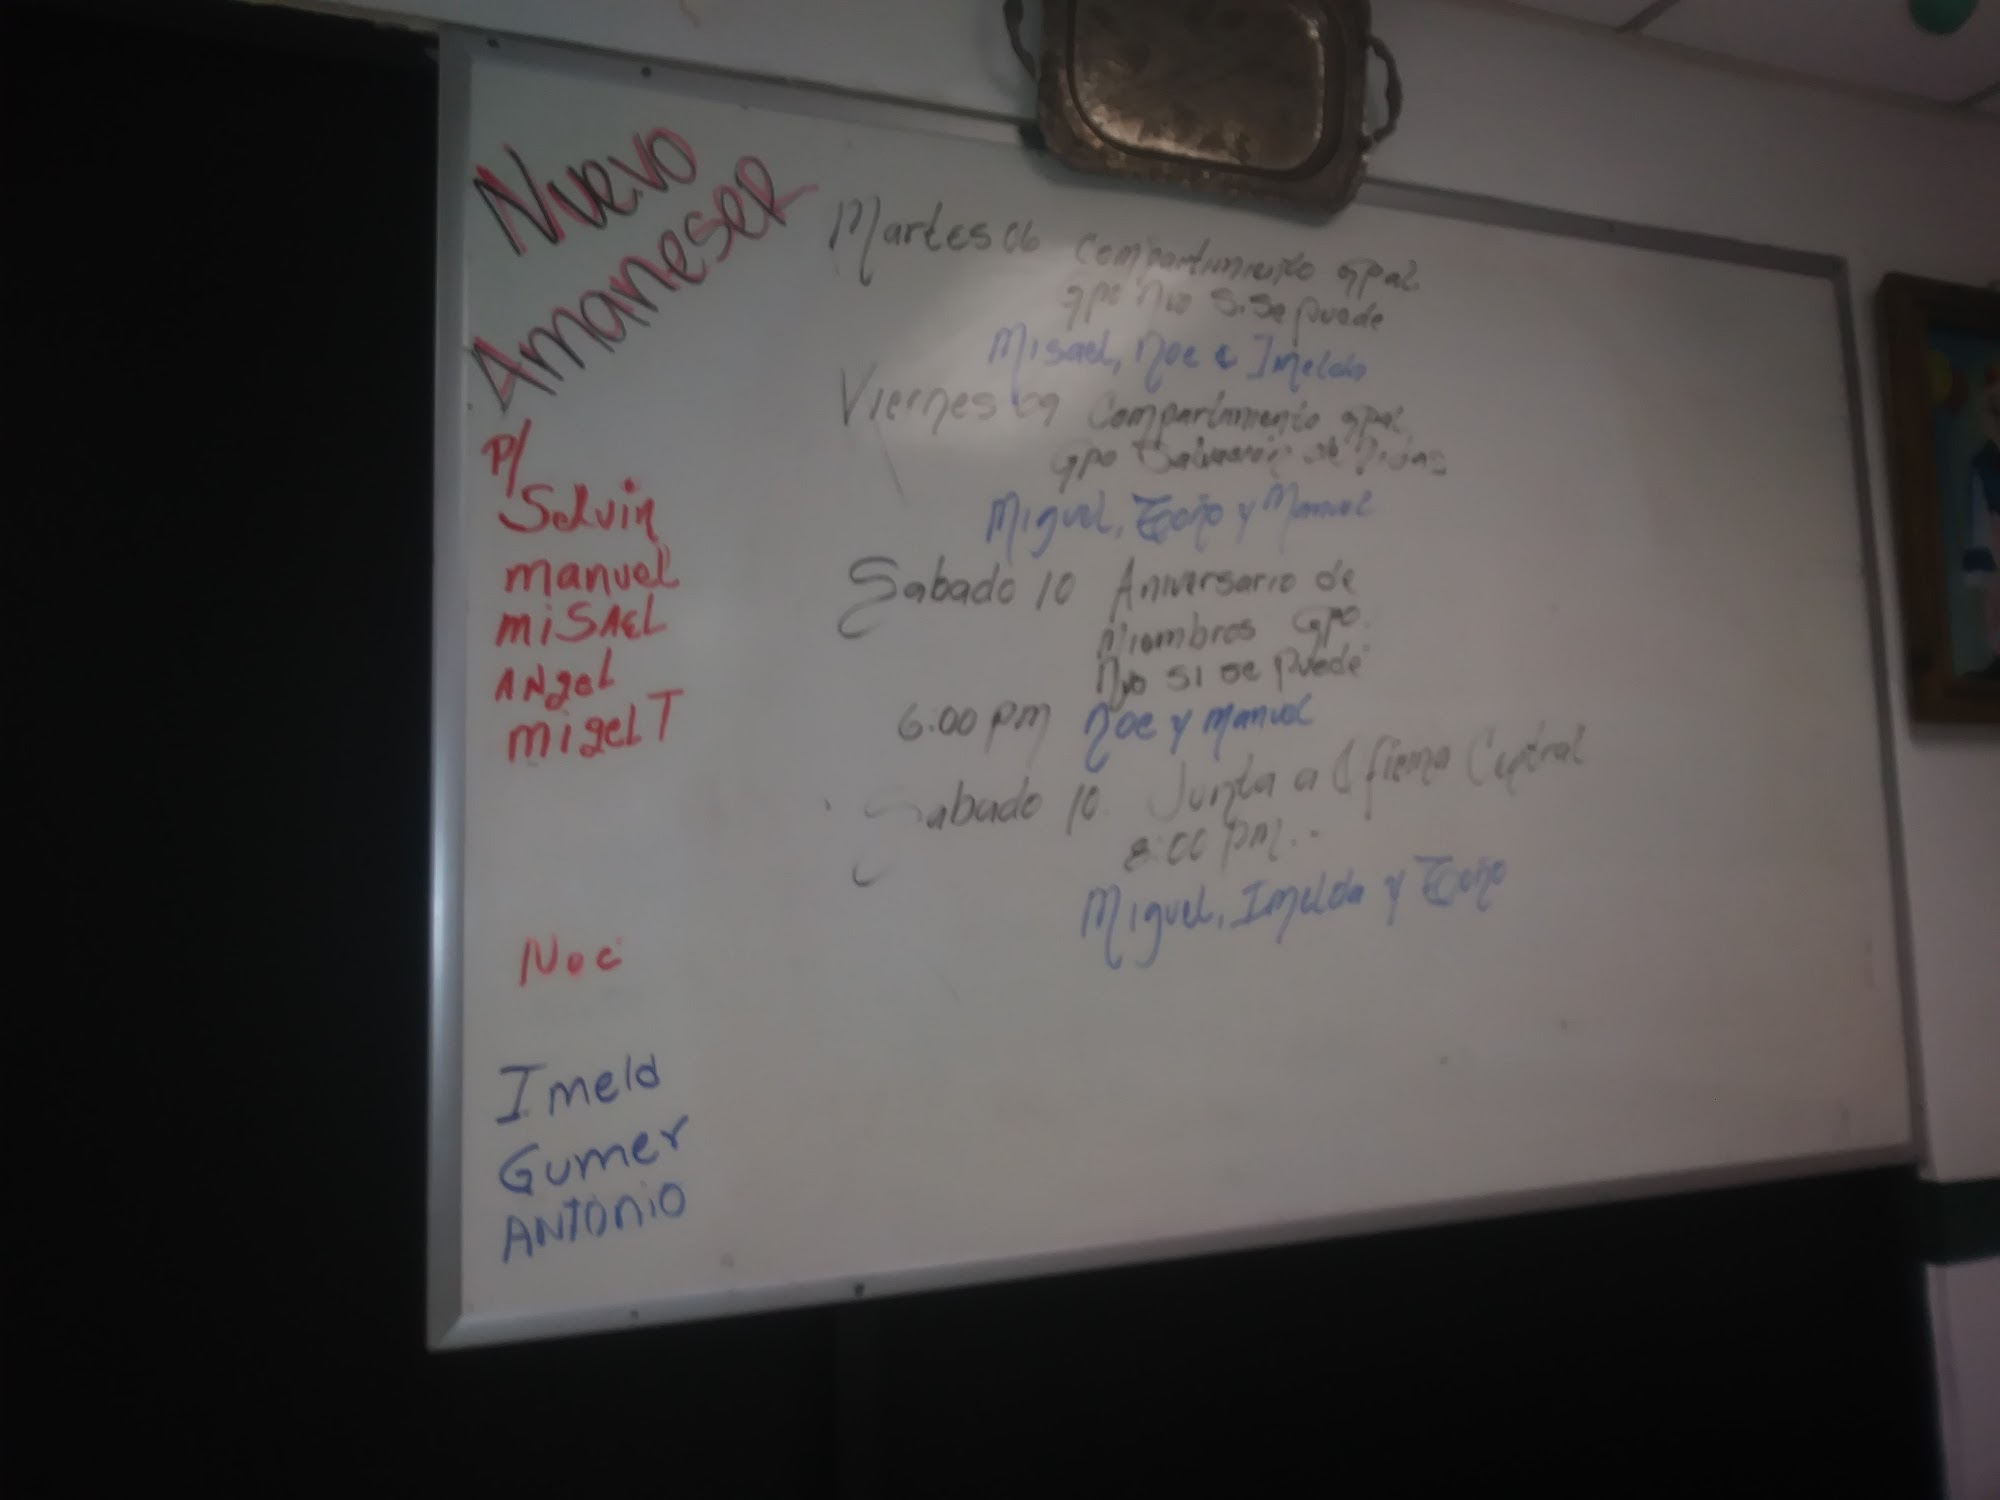 Nuevo
Amaneser
P/
Selvin
manuel
miSAEL
ANgeL
migeL T
Noe
Imeld
Gumer
ANTONIO
Martes 06 Compartimiento gpal
gpo Nvo Si Se puede
Misael, Noe e Imelda
Viernes 09 Compartimiento gpal
gpo de
Miguel, Toño y Manuel
Sabado 10 Aniversario de
Miembros Gpo.
Nvo Si se puede
6:00 pm Noe y manuel
Sabado 10. Junta a Oficina Central
8:00 pm.
Miguel, Imelda y Toño